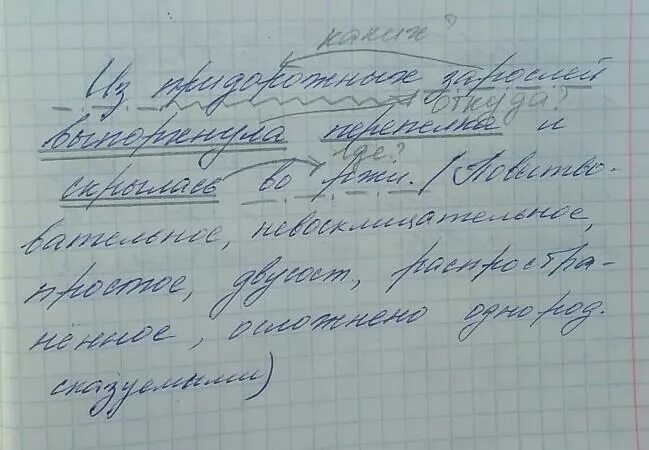 каких?
Из придорожных зарослей
откуда?
выпорхнула перепелка и
где?
скрылась во ржи. (Повество-
вательное, невосклицательное,
простое, двусост, распростра-
ненное, осложнено однород.
сказуемыми)